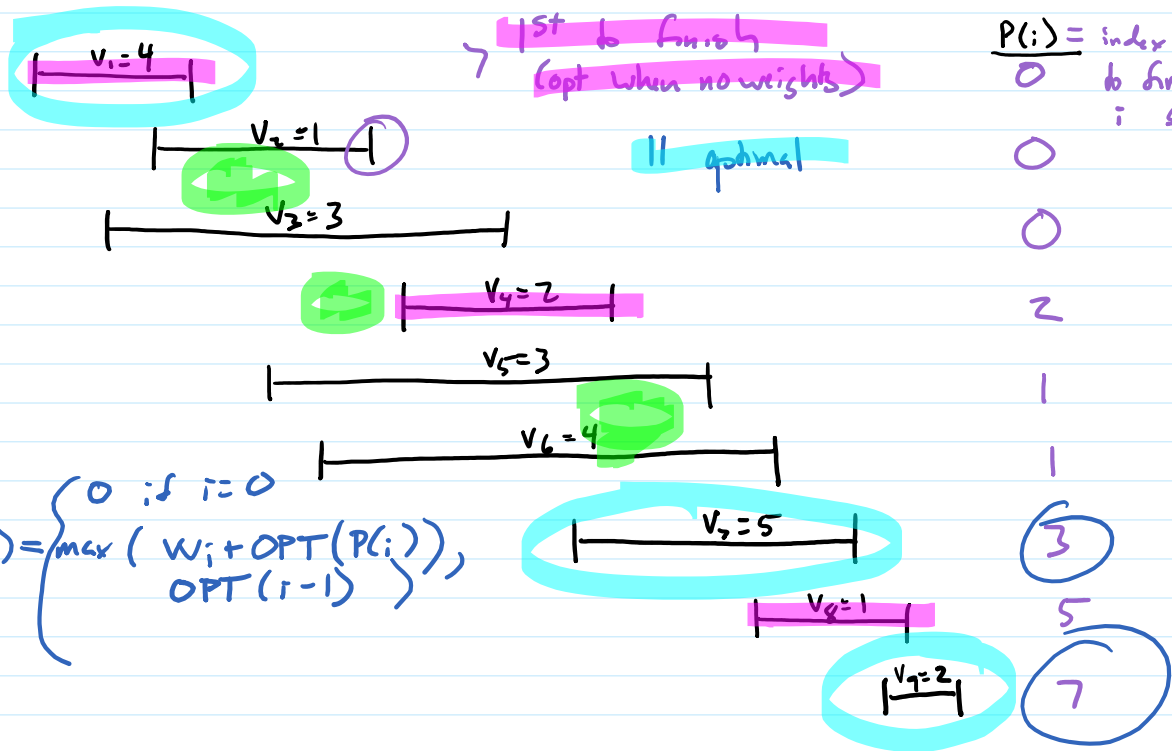 V₁=4
7 1st to finish
(opt when no weights)
P(i) = index
0 to fin
i s
V₂=1
11 optimal
0
V₃=3
0
V₄=2
2
V₅=3
1
V₆=4
1
0 if i=0
) = max ( Wi + OPT(P(i)),
OPT(i-1) )
V₇=5
3
V₈=1
5
V₉=2
7